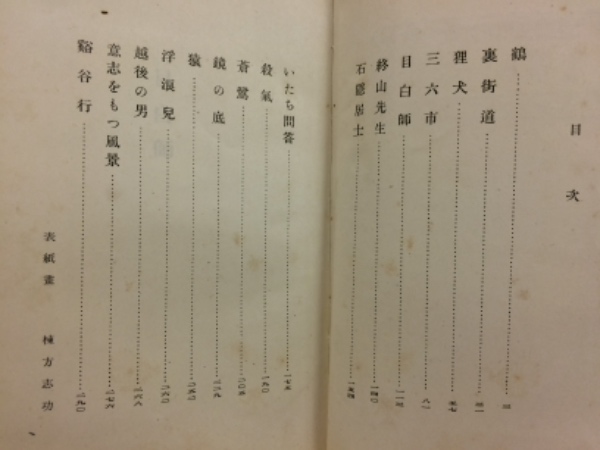 目次
鶴 三
裏街道 三一
狸犬 五七
三六市 八一
目白師 一一三
終山先生 一四〇
石隱居士 一五四
いたち問答 一七五
殺氣 一九〇
蒼鷺 二〇五
鏡の底
猿
浮浪兒
越後の男 二六八
意志をもつ風景 二七六
谿谷行 二九〇
表紙畫 棟方志功